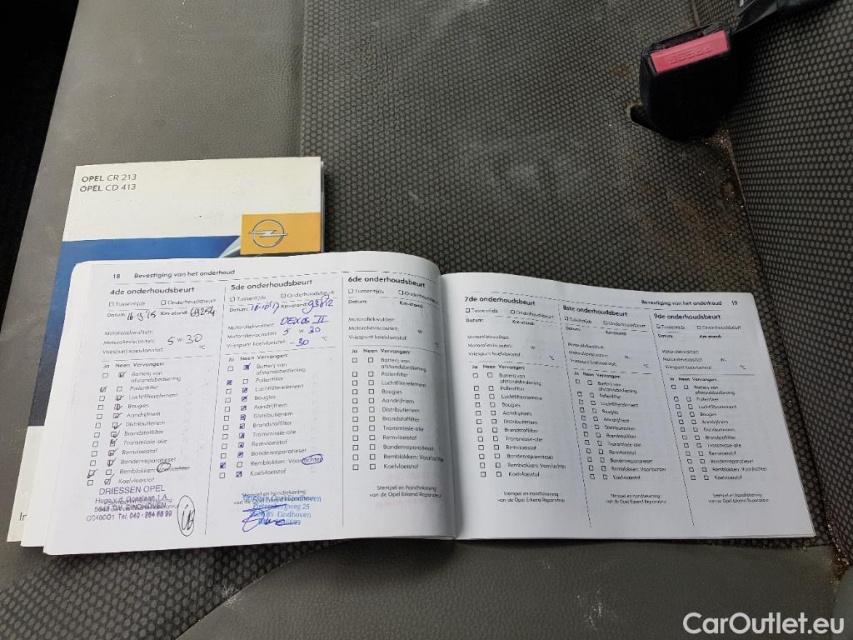 OPEL CR 213
OPEL CD 413
PRESS
18 Bevestiging van het onderhoud
4de onderhoudsbeurt
Tussentijds Onderhoudsbeurt
Datum: Km-stand:
Motoroliekwaliteit:
Motorolieviscositeit: 5 w 30
Vriespunt koelvloeistof: °C
Ja Neen Vervangen:
Batterij van afstandsbediening
Pollenfilter
Luchtfilterelement
Bougies
Aandrijfriem
Distributieriem
Brandstoffilter
Transmissie-olie
Remvloeistof
Bandenreparatieset
Remblokken: Voor/achter
Koelvloeistof
DRIESSEN OPEL
EINDHOVEN
5de onderhoudsbeurt
Tussentijds Onderhoudsbeurt
Datum: Km-stand: 93812
Motoroliekwaliteit: DEXOS II
Motorolieviscositeit: 5 w 30
Vriespunt koelvloeistof: -30 °C
Ja Neen Vervangen:
Batterij van
afstandsbediening
Pollenfilter
Luchtfilterelement
Bougies
Aandrijfriem
Distributieriem
Brandstoffilter
Transmissie-olie
Remvloeistof
Bandenreparatieset
Remblokken: Voor/achter
Koelvloeistof
Stempel en handtekening
Eindhoven
6de onderhoudsbeurt
Tussentijds Onderhoudsbeurt
Datum: Km-stand:
Motoroliekwaliteit:
Motorolieviscositeit: w
Vriespunt koelvloeistof: °C
Ja Neen Vervangen:
Batterij van
afstandsbediening
Pollenfilter
Luchtfilterelement
Bougies
Aandrijfriem
Distributieriem
Brandstoffilter
Transmissie-olie
Remvloeistof
Bandenreparatieset
Remblokken: Voor/achter
Koelvloeistof
Stempel en handtekening
van de Opel Erkend Reparateur
Bevestiging van het onderhoud 19
7de onderhoudsbeurt
Tussentijds Onderhoudsbeurt
Datum: Km-stand:
Motoroliekwaliteit:
Motorolieviscositeit: w
Vriespunt koelvloeistof: °C
Ja Neen Vervangen:
Batterij van
afstandsbediening
Pollenfilter
Luchtfilterelement
Bougies
Aandrijfriem
Distributieriem
Brandstoffilter
Transmissie-olie
Remvloeistof
Bandenreparatieset
Remblokken: Voor/achter
Koelvloeistof
Stempel en handtekening
van de Opel Erkend Reparateur
8ste onderhoudsbeurt
Tussentijds Onderhoudsbeurt
Datum: Km-stand:
Motoroliekwaliteit:
Motorolieviscositeit: w
Vriespunt koelvloeistof: °C
Ja Neen Vervangen:
Batterij van
afstandsbediening
Pollenfilter
Luchtfilterelement
Bougies
Aandrijfriem
Distributieriem
Brandstoffilter
Transmissie-olie
Remvloeistof
Bandenreparatieset
Remblokken: Voor/achter
Koelvloeistof
Stempel en handtekening
van de Opel Erkend Reparateur
9de onderhoudsbeurt
Tussentijds Onderhoudsbeurt
Datum: Km-stand:
Motoroliekwaliteit:
Motorolieviscositeit: w
Vriespunt koelvloeistof: °C
Ja Neen Vervangen:
Batterij van
afstandsbediening
Pollenfilter
Luchtfilterelement
Bougies
Aandrijfriem
Distributieriem
Brandstoffilter
Transmissie-olie
Remvloeistof
Bandenreparatieset
Remblokken: Voor/achter
Koelvloeistof
Stempel en handtekening
van de Opel Erkend Reparateur
CarOutlet.eu